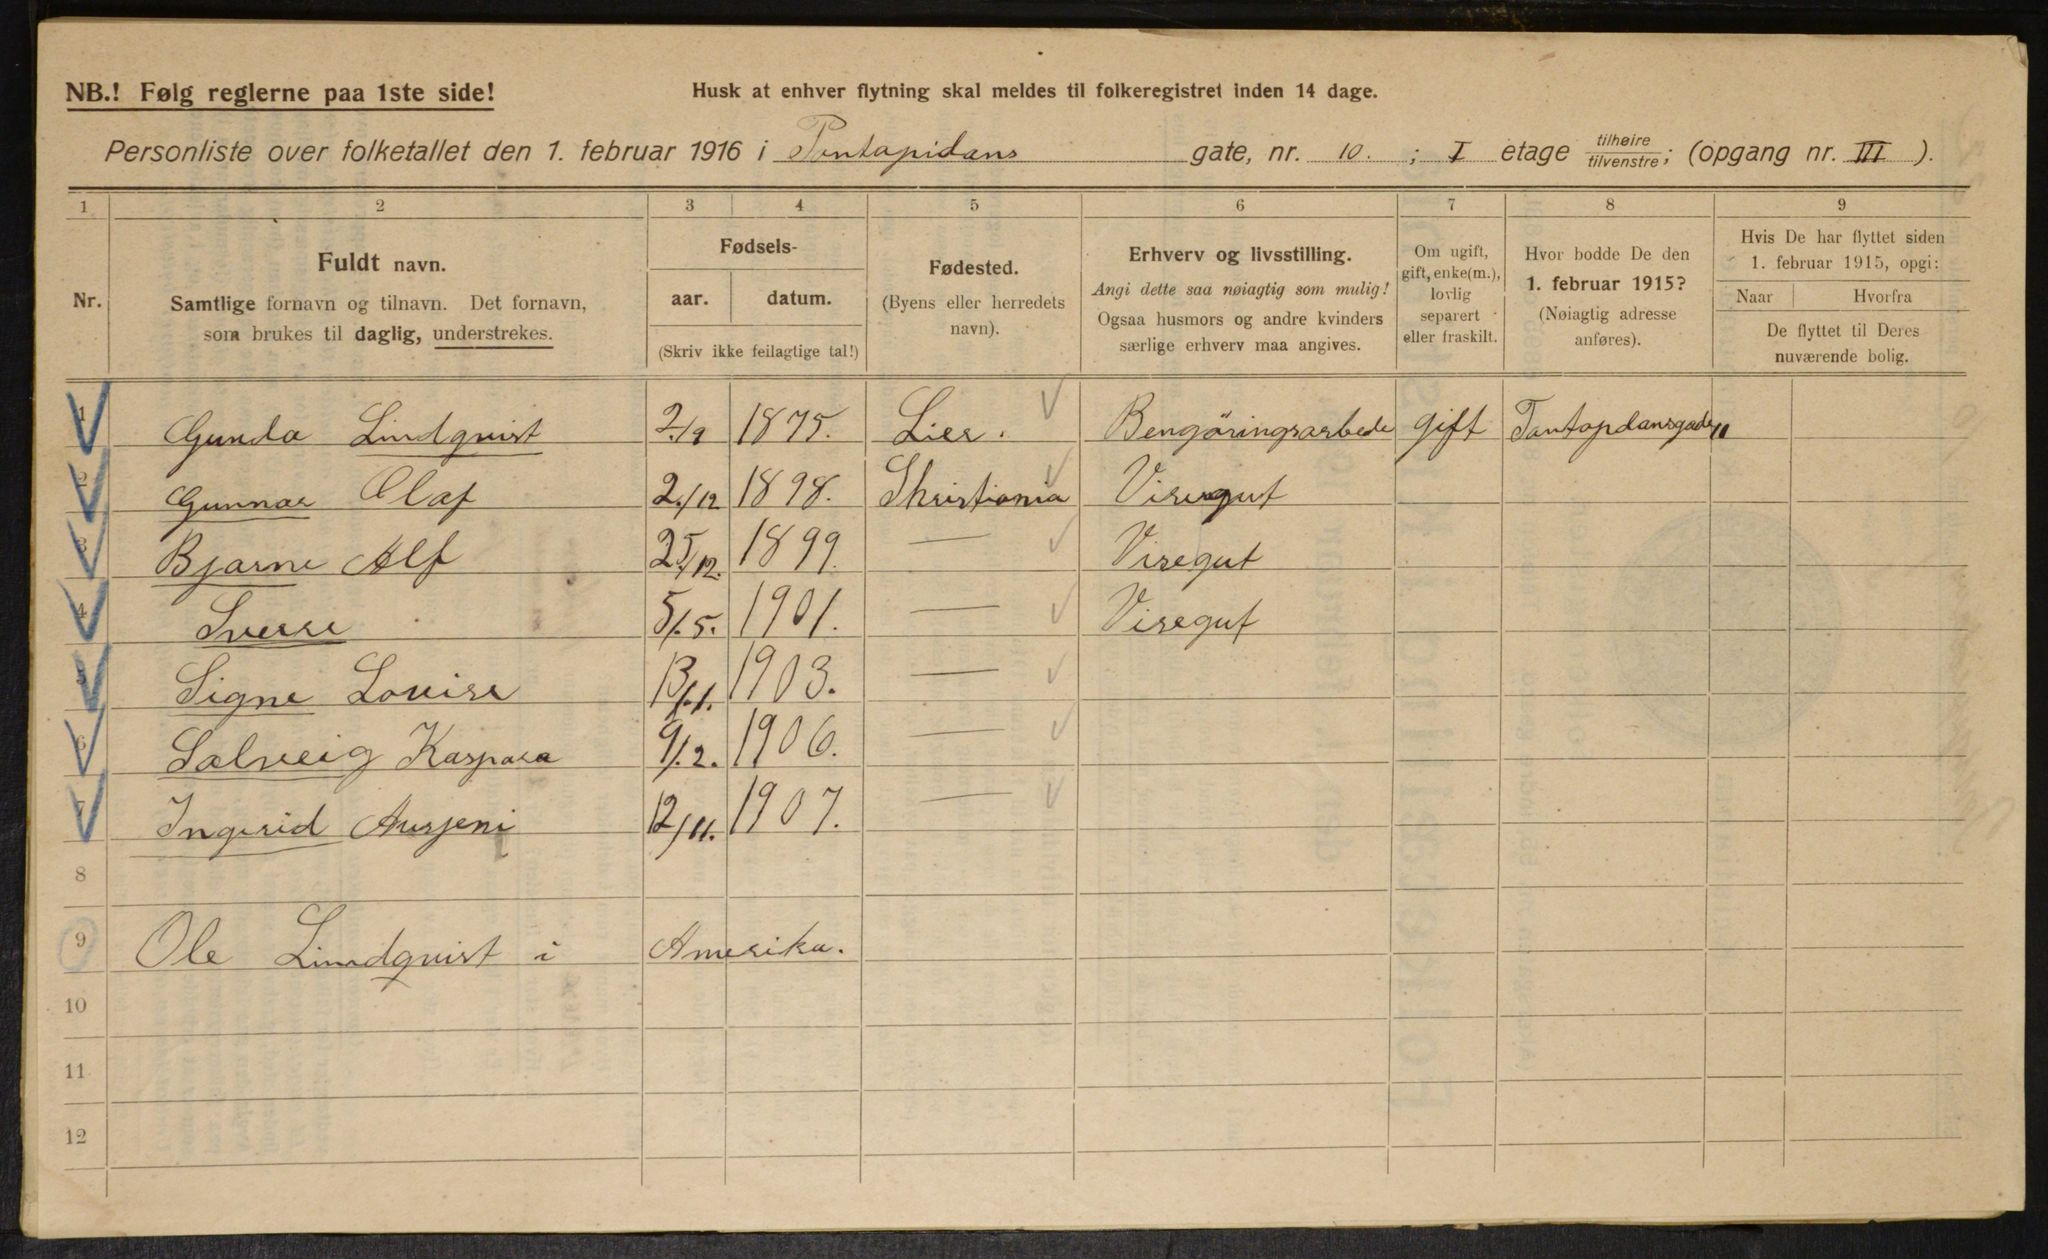 NB.! Følg reglerne paa 1ste side!
Husk at enhver flytning skal meldes til folkeregistret inden 14 dage.
Personliste over folketallet den 1. februar 1916 i Pontopidans gate, nr. 10. ; I etage tilhøire/tilvenstre; (opgang nr. III ).
1 2 3 4 5 6 7 8 9
Nr.
Fuldt navn.
Samtlige fornavn og tilnavn. Det fornavn,
som brukes til daglig, understrekes.
Fødsels-
aar. datum.
(Skriv ikke feilagtige tal!)
Fødested.
(Byens eller herredets
navn).
Erhverv og livsstilling.
Angi dette saa nøiagtig som mulig!
Ogsaa husmors og andre kvinders
særlige erhverv maa angives.
Om ugift,
gift, enke(m.),
lovlig
separert
eller fraskilt.
Hvor bodde De den
1. februar 1915?
(Nøiagtig adresse
anføres).
Hvis De har flyttet siden
1. februar 1915, opgi:
Naar Hvorfra
De flyttet til Deres
nuværende bolig.
1 Gunda Lindquist 2/9 1875. Lier. Bengöringsarbede gift Tontopdansgade 11
2 Gunnar Olaf 2./12 1898. Khristiania Visergut
3 Bjarne Alf 25/12. 1899. — Visegut
4 Sverre 5/.5. 1901. — Visegut
5 Signe Louise 13/.1. 1903. —
6 Solveig Kaspara 9/.2. 1906. —
7 Ingerid Aurjeni 12/11. 1907. —
8
9 Ole Lindquist i Amerika.
10
11
12